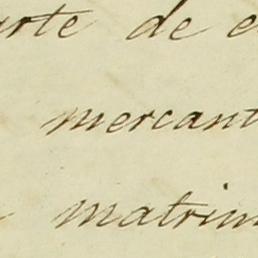 arte de e
mercant
matrim